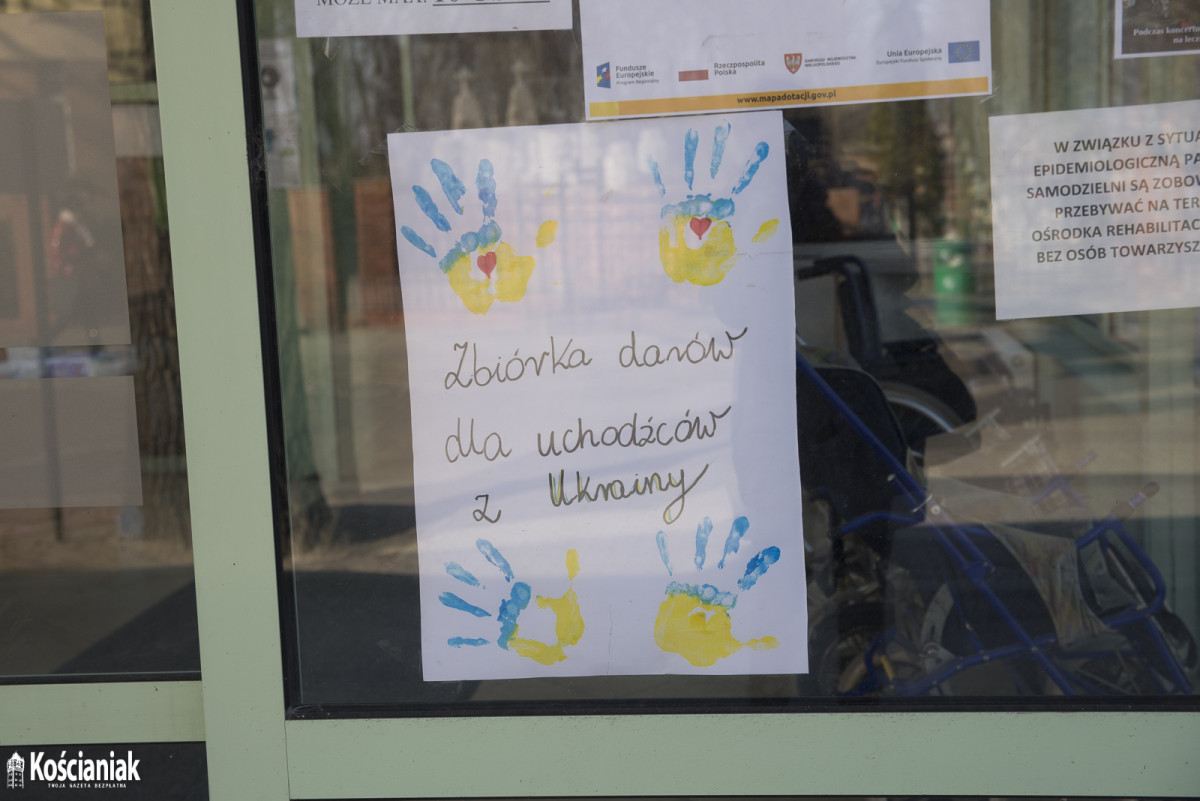 MOŻE MAX.
Fundusze
Europejskie
Program Regionalny
Rzeczpospolita
Polska
SAMORZĄD WOJEWÓDZTWA
WIELKOPOLSKIEGO
Unia Europejska
Europejski Fundusz Społeczny
www.mapadotacji.gov.pl
Podczas koncertu
na lecz
W ZWIĄZKU Z SYTUA
EPIDEMIOLOGICZNĄ PA
SAMODZIELNI SĄ ZOBOW
PRZEBYWAĆ NA TER
OŚRODKA REHABILITAC
BEZ OSÓB TOWARZYSZ
Zbiórka darów
dla uchodźców
z Ukrainy
Kościaniak
TWOJA GAZETA BEZPŁATNA